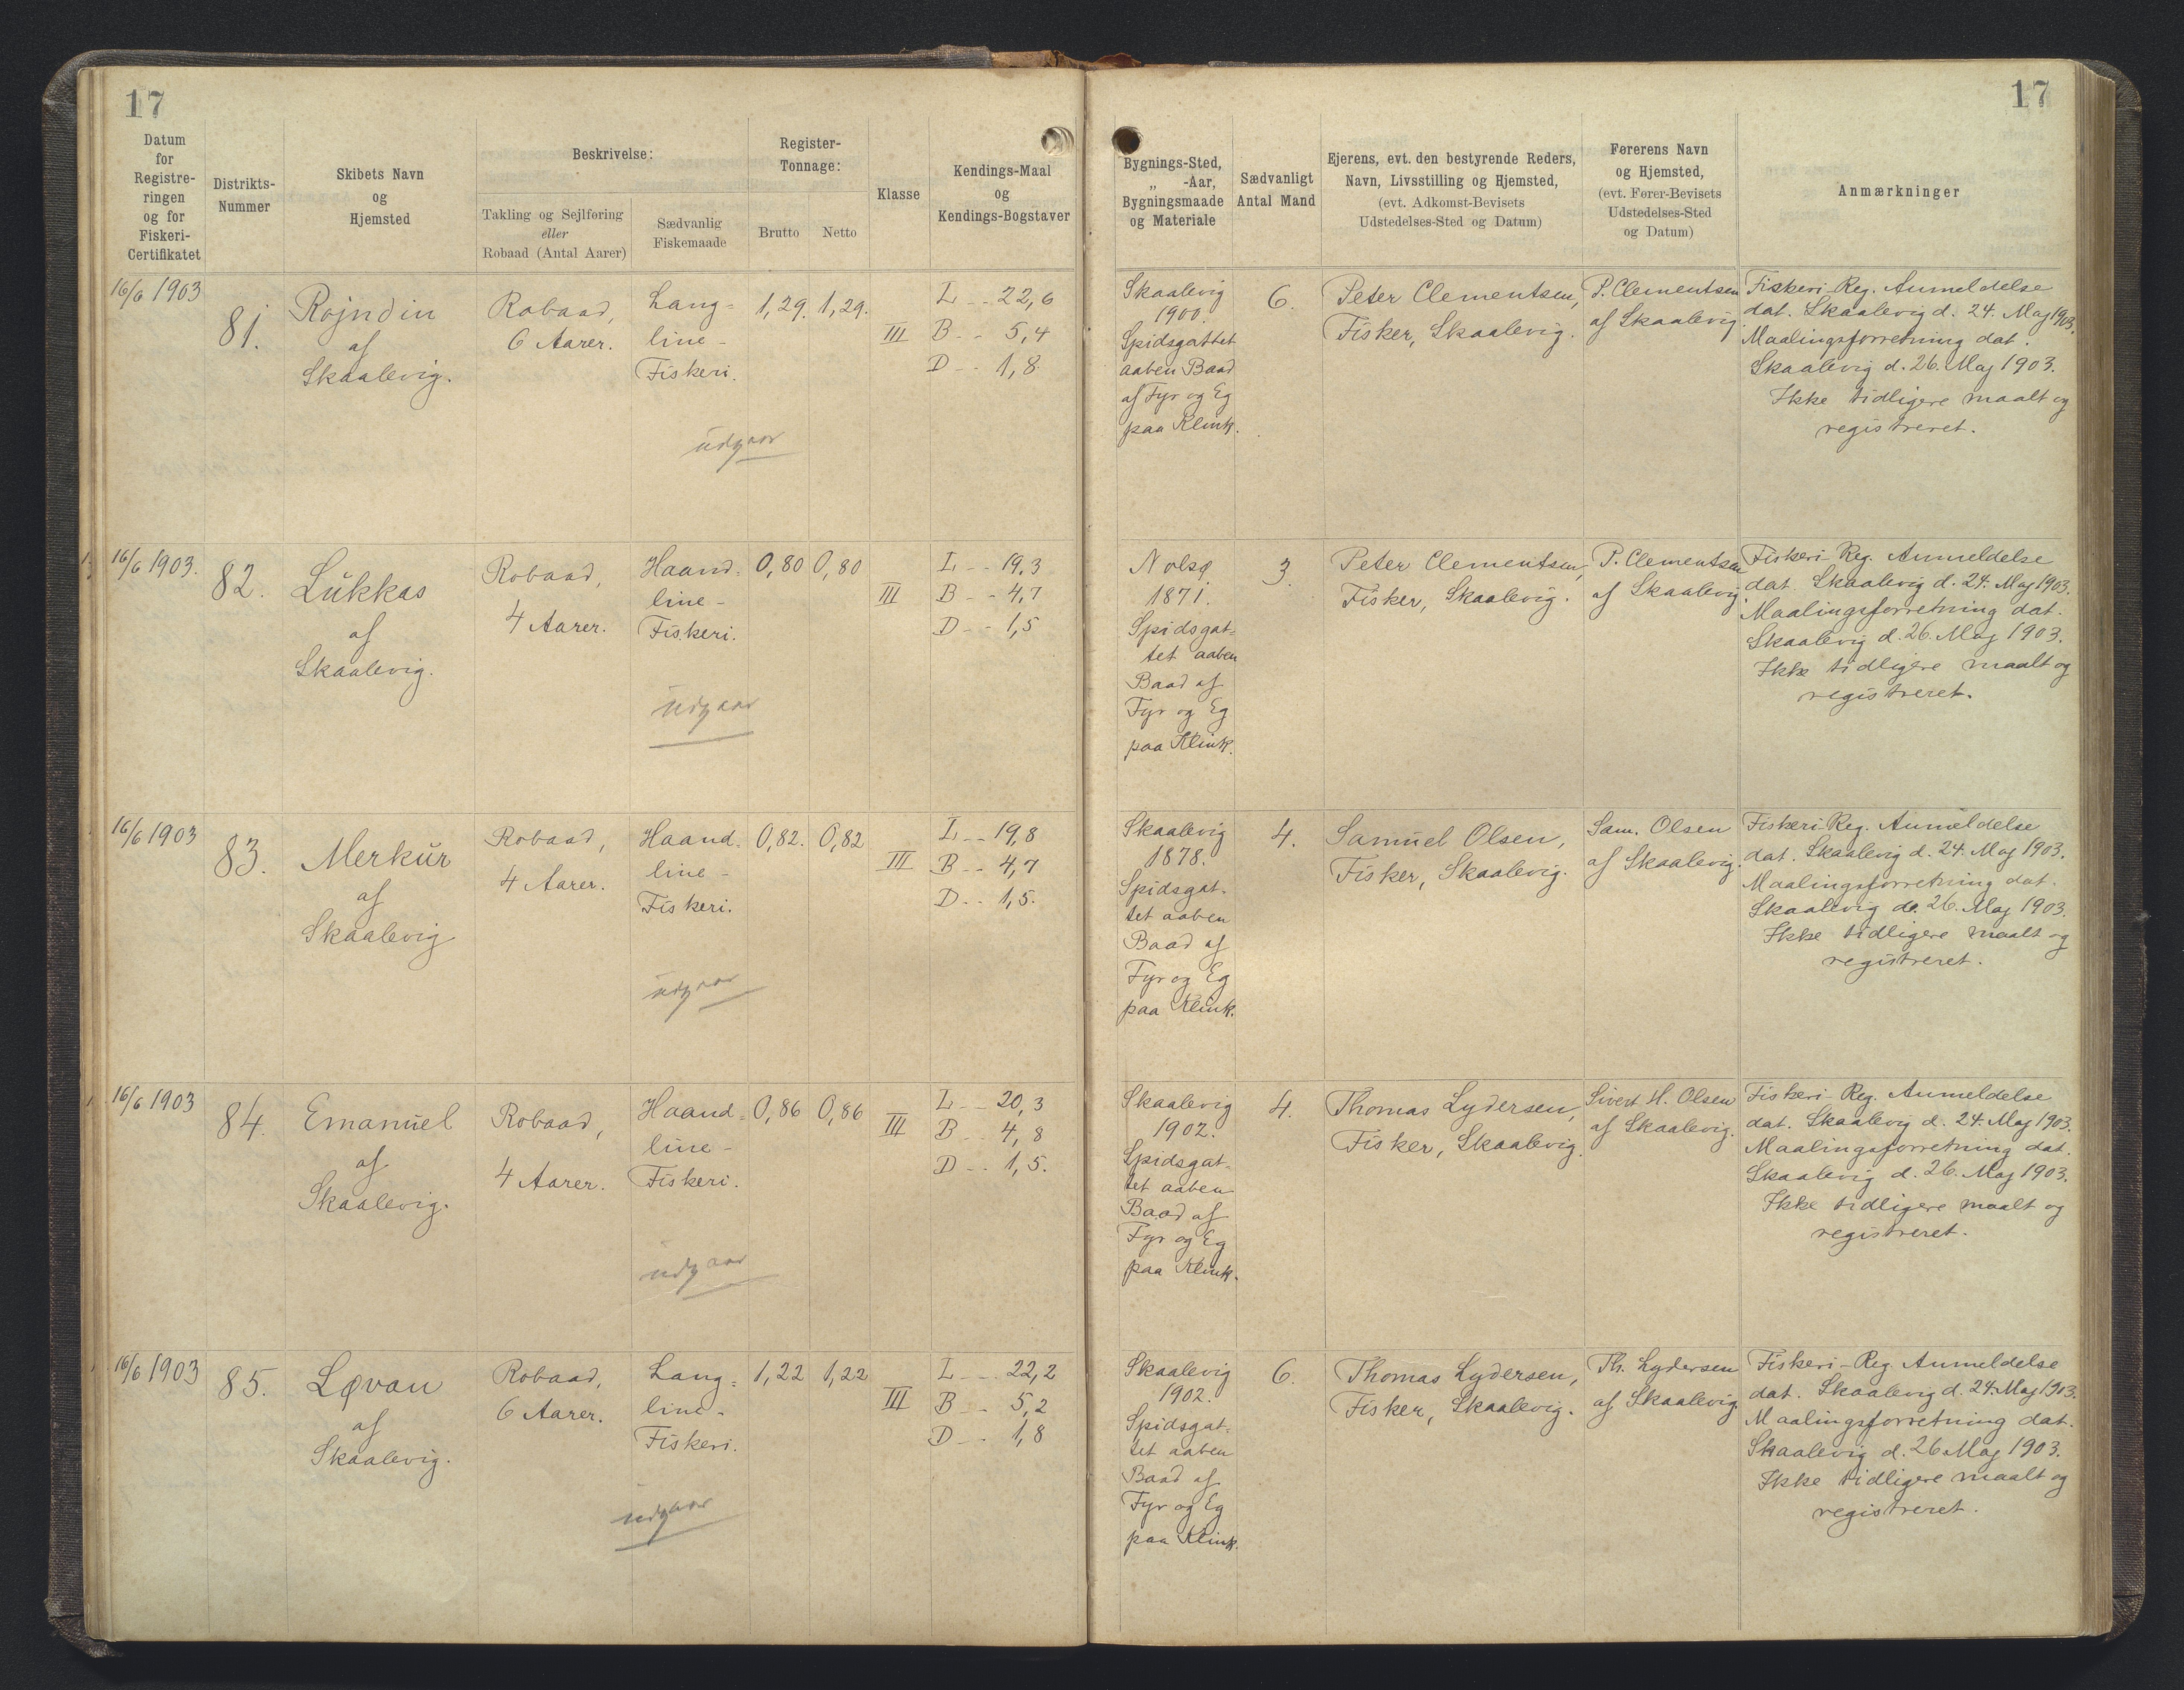 17
17
Datum
for
Registre-
ringen
og for
Fiskeri-
Certifikatet
Distrikts-
Nummer
Skibets Navn
og
Hjemsted
Beskrivelse:
Takling og Sejlføring
eller
Robaad (Antal Aarer)
Sædvanlig
Fiskemaade
Register-
Tonnage:
Brutto
Netto
Klasse
Kendings-Maal
og
Kendings-Bogstaver
Bygnings-Sted,
„ -Aar,
Bygningsmaade
og Materiale
Sædvanligt
Antal Mand
Ejerens, evt. den bestyrende Reders,
Navn, Livsstilling og Hjemsted,
(evt. Adkomst-Bevisets
Udstedelses-Sted og Datum)
Førerens Navn
og Hjemsted,
(evt. Fører-Bevisets
Udstedelses-Sted
og Datum)
Anmærkninger
16/6 1903
81.
Rojndin
af
Skaalevig.
Robaad,
6 Aarer.
Lang-
line-
Fiskeri.
1,29.
1,29.
III
L -- 22,6
B -- 5,4
D -- 1,8.
udgaar
Skaalevig
1900.
Spidsgattet
aaben Baad
af Fyr og Eg
paa Klink.
6.
Peter Clementsen,
Fisker, Skaalevig.
P. Clementsen
af Skaalevig.
Fiskeri-Reg. Anmeldelse
dat. Skaalevig d. 24. Maj 1903.
Maalingsforretning dat.
Skaalevig d. 26. Maj 1903.
Ikke tidligere maalt og
registreret.
16/6 1903.
82.
Lukkas
af
Skaalevig.
Robaad,
4 Aarer.
Haand-
line-
Fiskeri.
0,80
0,80
III
L -- 19,3
B -- 4,7
D -- 1,5
udgaar
Nolsø
1871.
Spidsgat-
tet aaben
Baad af
Fyr og Eg
paa Klink.
3.
Peter Clementsen,
Fisker, Skaalevig.
P. Clementsen
af Skaalevig.
Fiskeri-Reg. Anmeldelse
dat. Skaalevig d. 24. Maj 1903.
Maalingsforretning dat.
Skaalevig d. 26. Maj 1903.
Ikke tidligere maalt og
registreret.
16/6 1903
83.
Merkur
af
Skaalevig
Robaad,
4 Aarer.
Haand-
line-
Fiskeri.
0,82.
0,82
III
L -- 19,8
B -- 4,7
D -- 1,5.
udgaar
Skaalevig
1878.
Spidsgat-
tet aaben
Baad af
Fyr og Eg
paa Klink.
4.
Samuel Olsen,
Fisker, Skaalevig.
Sam. Olsen
af Skaalevig.
Fiskeri-Reg. Anmeldelse
dat. Skaalevig d. 24. Maj 1903.
Maalingsforretning dat.
Skaalevig d. 26. Maj 1903.
Ikke tidligere maalt og
registreret.
16/6 1903
84.
Emanuel
af
Skaalevig.
Robaad,
4 Aarer.
Haand-
line-
Fiskeri.
0,86
0,86
III
L -- 20,3
B -- 4,8
D -- 1,5.
udgaar
Skaalevig
1902.
Spidsgat-
tet aaben
Baad af
Fyr og Eg
paa Klink.
4.
Thomas Lydersen,
Fisker, Skaalevig.
Sivert H. Olsen
af Skaalevig.
Fiskeri-Reg. Anmeldelse
dat. Skaalevig d. 24. Maj 1903.
Maalingsforretning dat.
Skaalevig d. 26. Maj 1903.
Ikke tidligere maalt og
registreret.
16/6 1903
85.
Løvan
af
Skaalevig.
Robaad,
6 Aarer.
Lang-
line-
Fiskeri.
1,22
1,22
III
L -- 22,2
B -- 5,2
D -- 1,8
udgaar
Skaalevig
1902.
Spidsgat-
tet aaben
Baad af
Fyr og Eg
paa Klink.
6.
Thomas Lydersen,
Fisker, Skaalevig.
Th. Lydersen
af Skaalevig
Fiskeri-Reg. Anmeldelse
dat. Skaalevig d. 24. Maj 1903.
Maalingsforretning dat.
Skaalevig d. 26 Maj 1903.
Ikke tidligere maalt og
registreret.